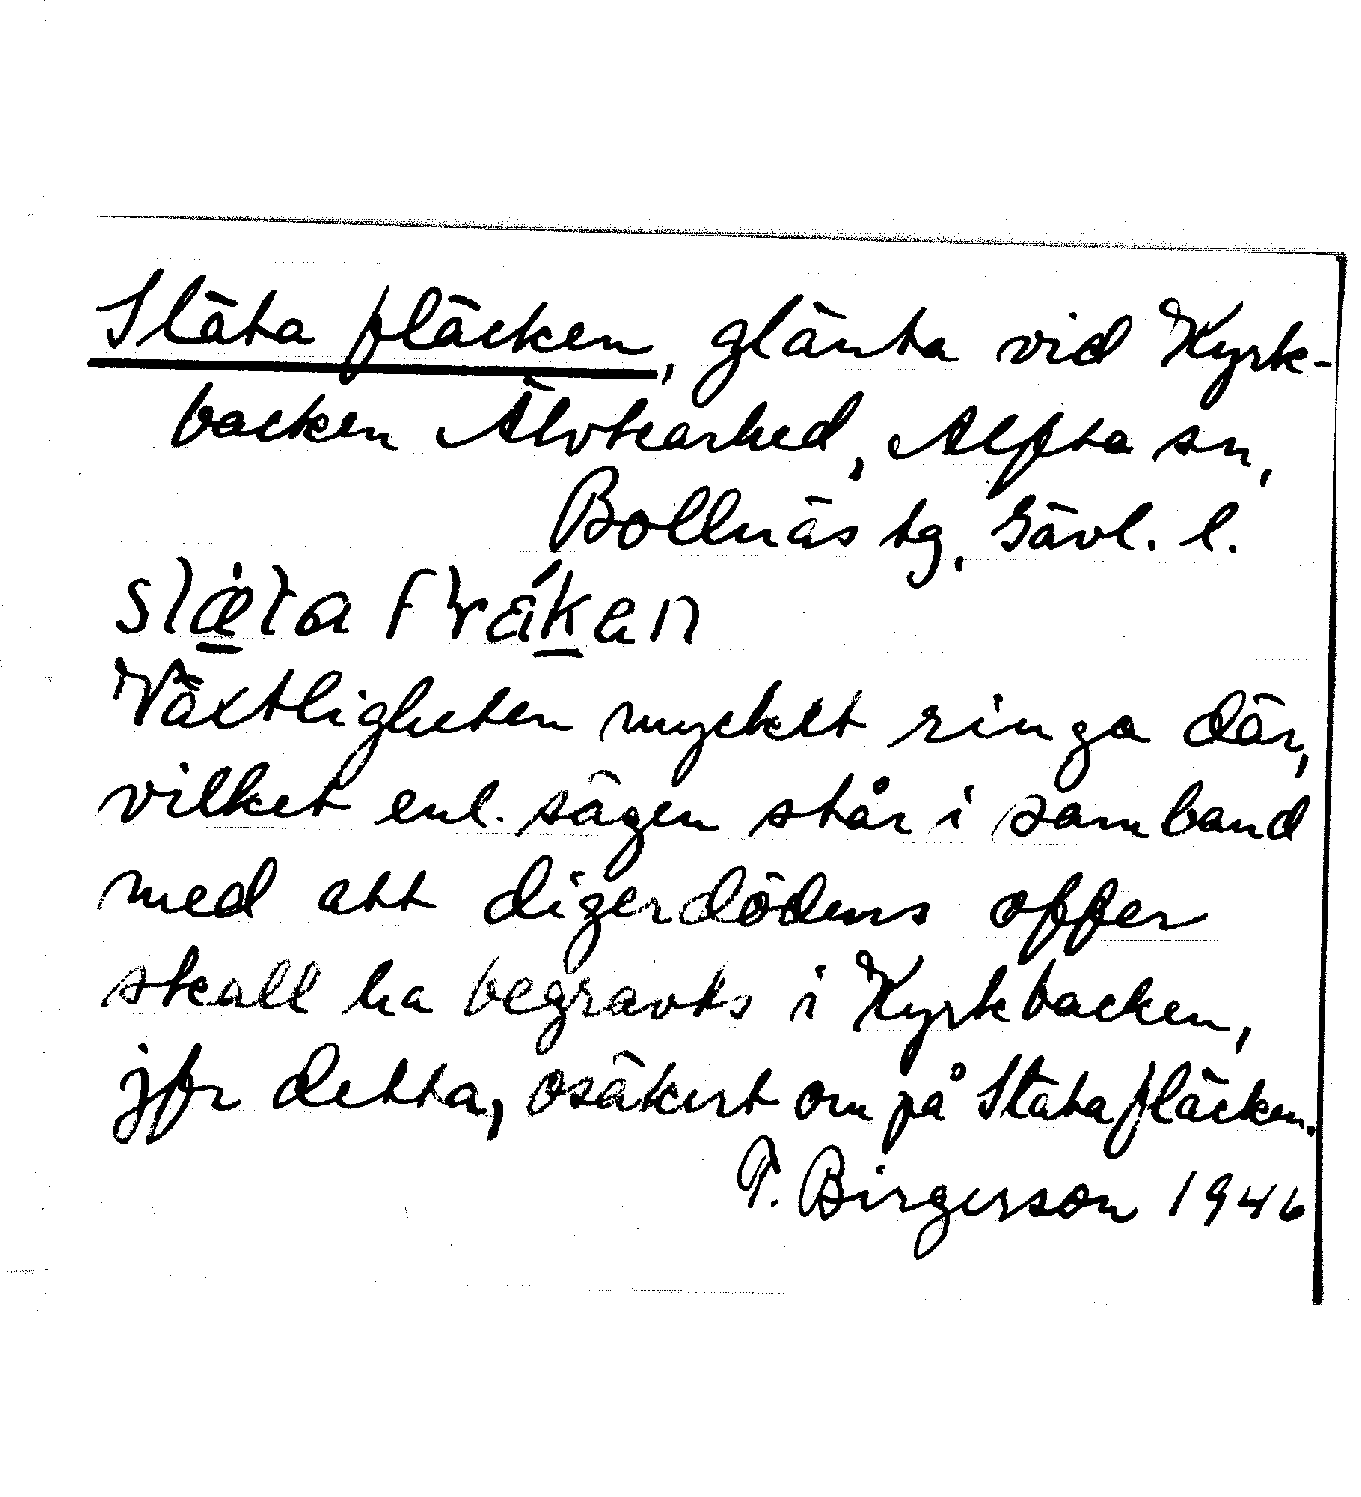 Släta fläcken, glänta vid Kyrk-
backen Älvkarhed, Alfta sn,
Bollnäs tg, Gävl. l.
släta
Växtligheten mycket ringa där,
vilket enl. sägen står i samband
med att digerdödens offer
skall ha begravts i Kyrkbacken,
jfr detta, osäkert om på Släta fläcken.
F. Birgerson 1946